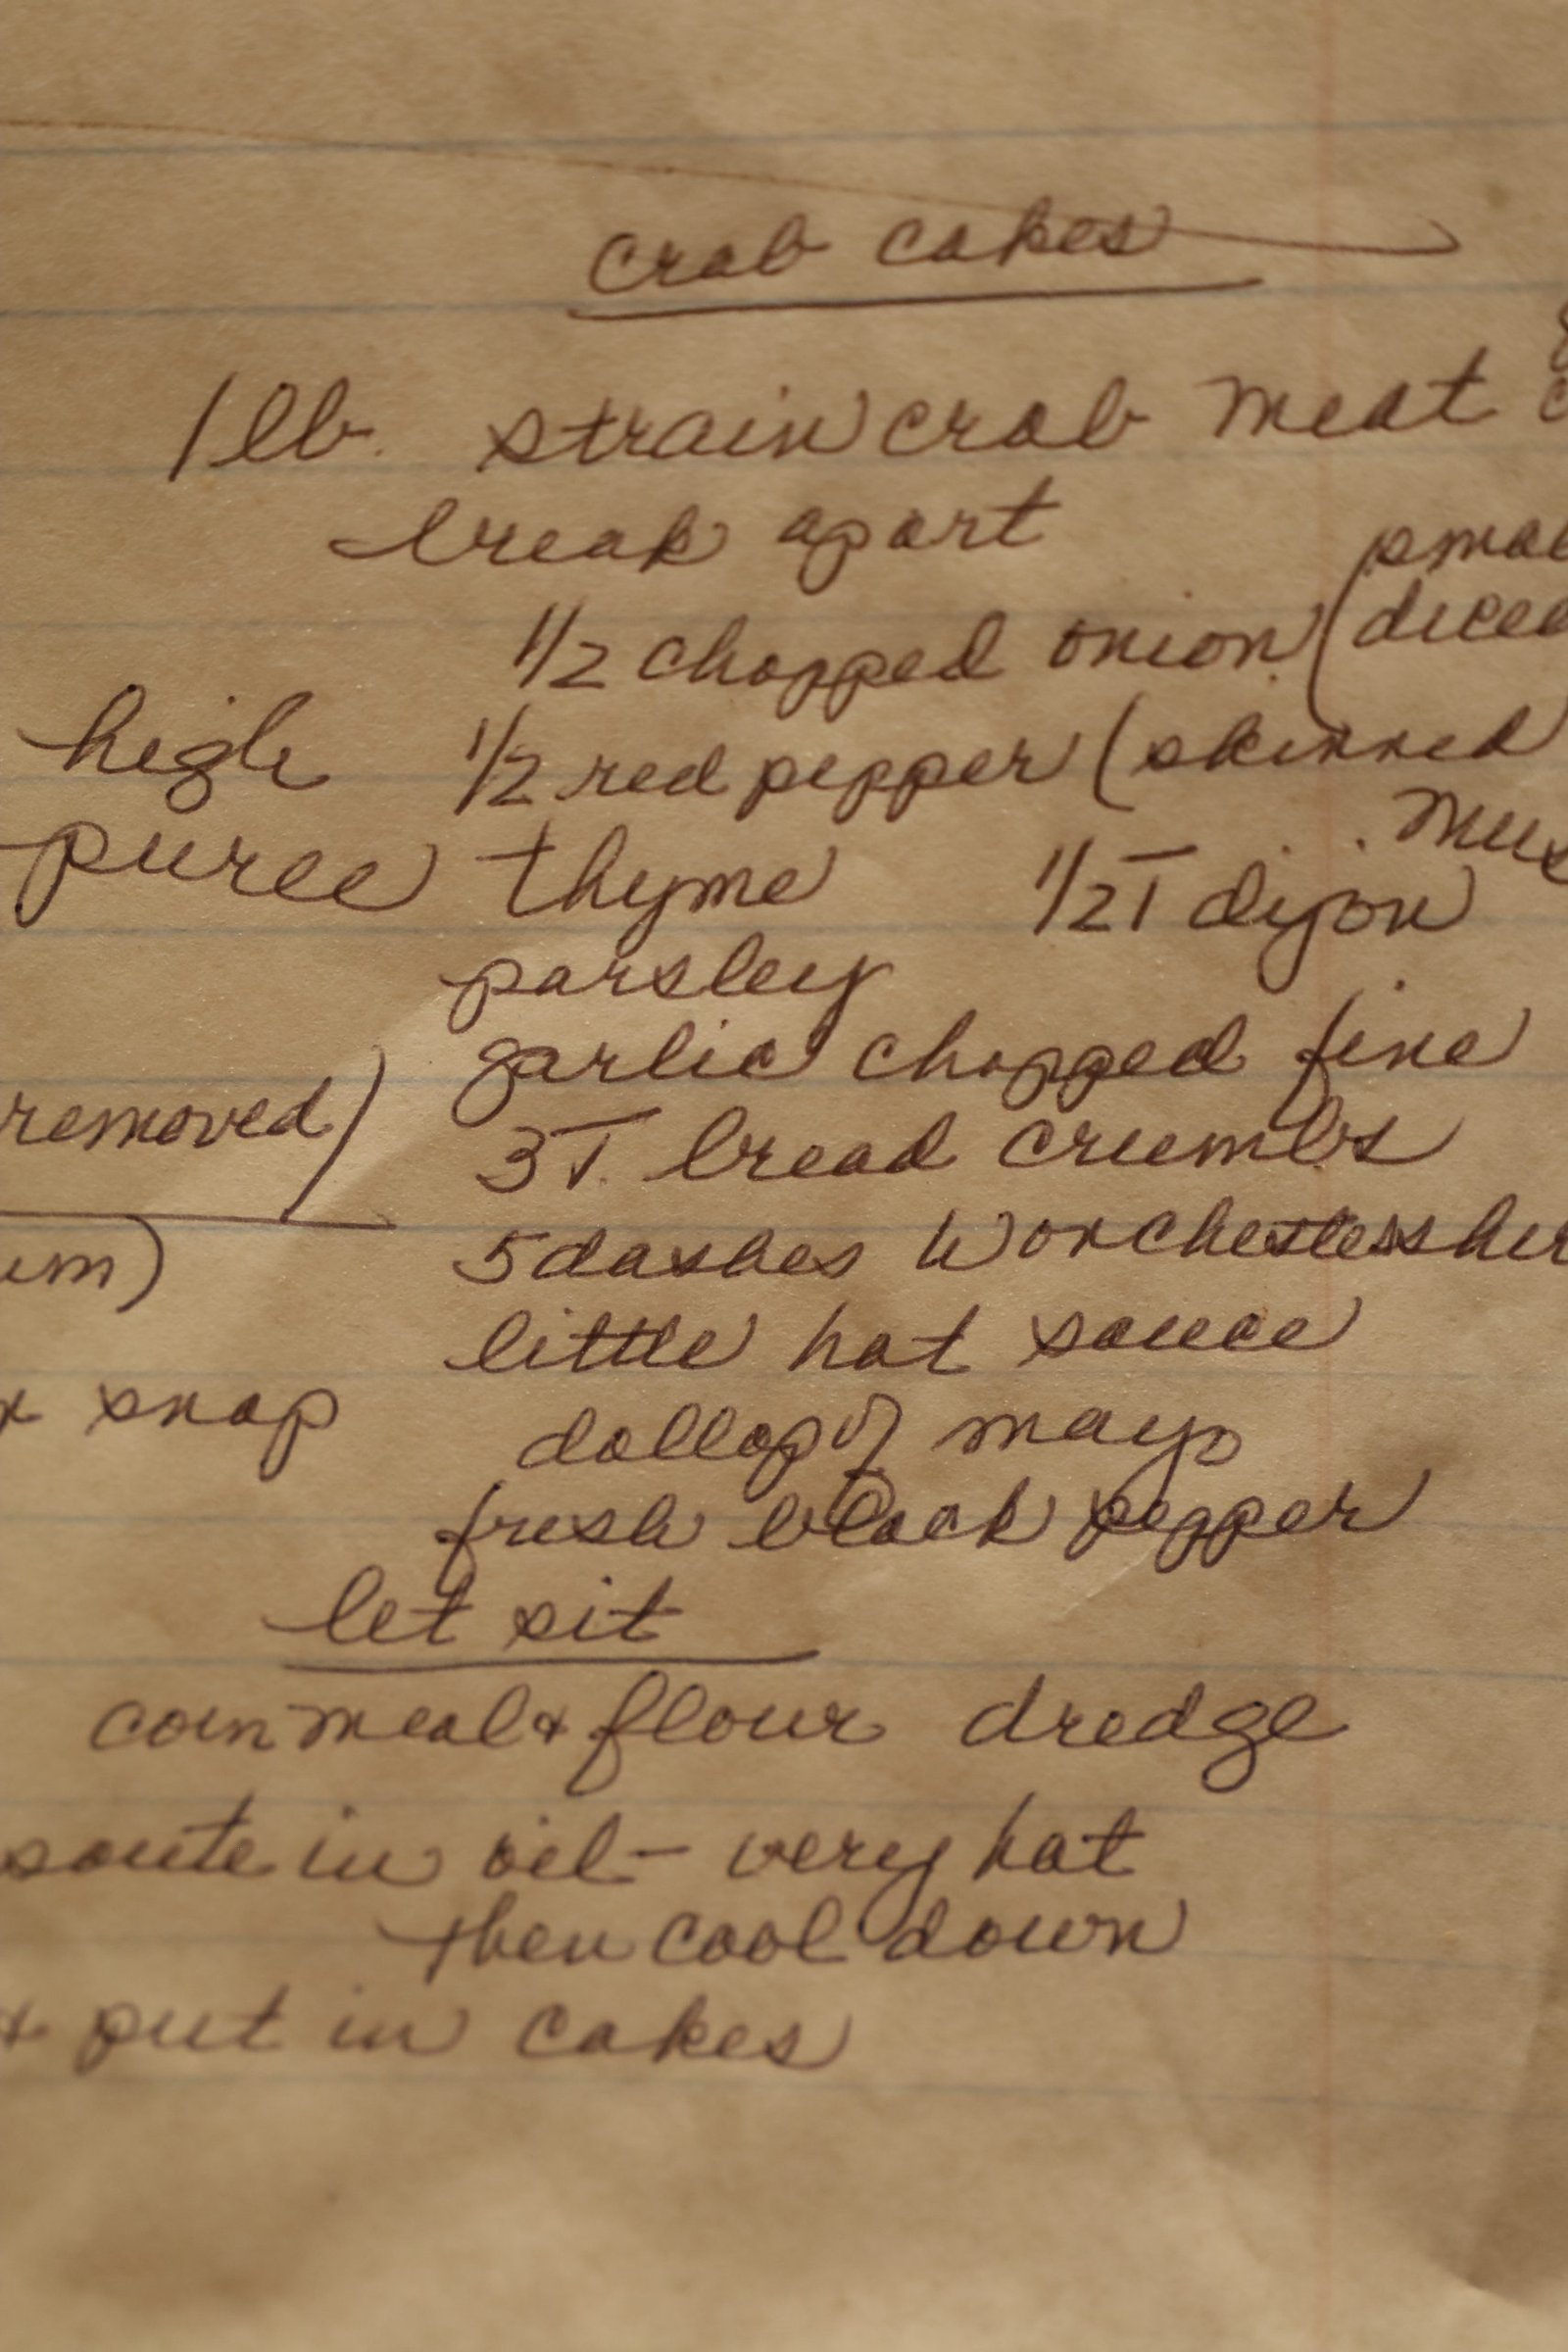 crab cakes
1 lb. strain crab meat
break apart
1/2 chopped onion (
high 1/2 red pepper (skinned
puree thyme 1/2 T dijon
parsley
garlic chopped fine
removed) 3 T. bread crumbs
5 dashes Worchestesshir
little hot sauce
snap dollop of mayo
fresh black pepper
let sit
cornmeal & flour dredge
saute in oil - very hot
then cool down
& put in cakes